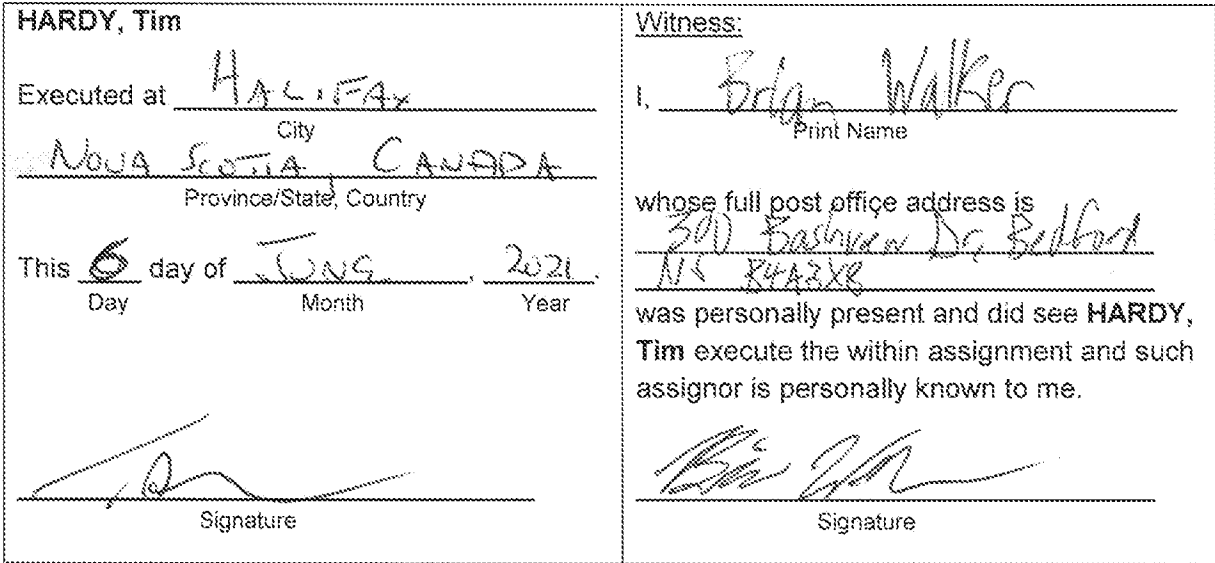 HARDY, Tim
Executed at HALIFAX
City
NOVA SCOTIA, CANADA
Province/State, Country
This 6 day of JUNE, 2021.
Day Month Year
Signature
Witness:
I, Brian Walker
Print Name
whose full post office address is
390 Dr, Bedford
NS B4A3X8
was personally present and did see HARDY,
Tim execute the within assignment and such
assignor is personally known to me.
Signature